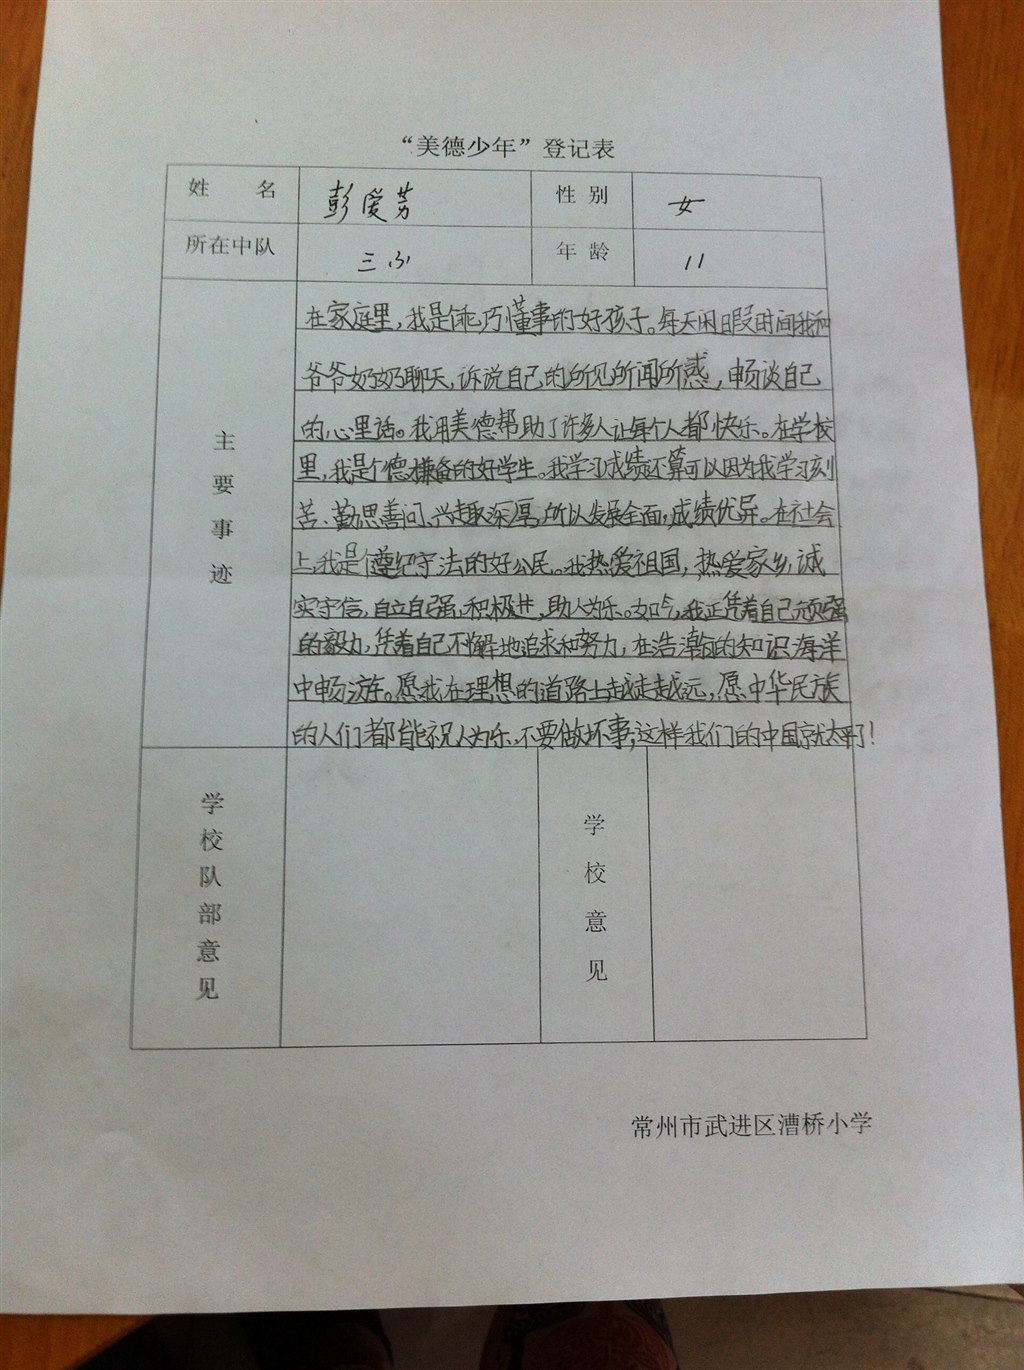 “美德少年”登记表
姓 名 彭爱芳 性 别 女
所在中队 三 年 龄 11
主要事迹
在家庭里，我是个乖巧懂事的好孩子。每天闲暇时间我和
爷爷奶奶聊天，诉说自己的所见所闻所惑，畅谈自己
的心里话。我用美德帮助了许多人让每个人都快乐。在学校
里，我是个德才兼备的好学生。我学习成绩还算可以因为我学习刻
苦、勤思善问、兴趣深厚，所以发展全面，成绩优异。在社会
上，我是个遵纪守法的好公民。我热爱祖国，热爱家乡，诚
实守信，自立自强，积极上进，助人为乐。如今，我正凭着自己顽强
的毅力，凭着自己不懈地追求和努力，在浩瀚的知识海洋
中畅游。愿我在理想的道路上越走越远，愿中华民族
的人们都能人为乐，不要做坏事，这样我们的中国就太平了！
学校队部意见
学校意见
常州市武进区漕桥小学